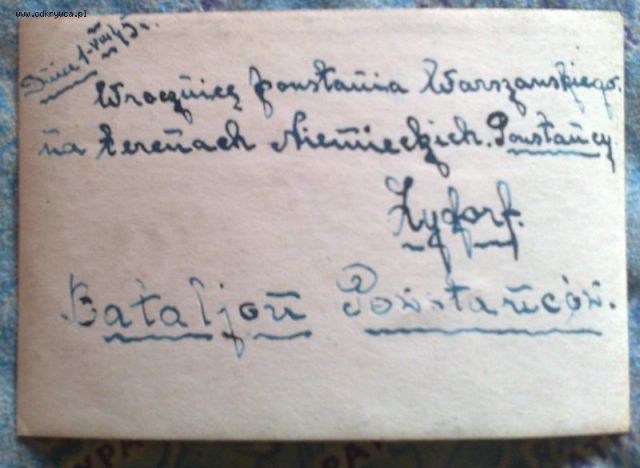 www.odkrywca.pl
Dnia 1-VIII 45r.
W rocznicę powstania Warszawskiego.
na terenach Niemieckich. Powstańcy
Bataljon Powstańców.